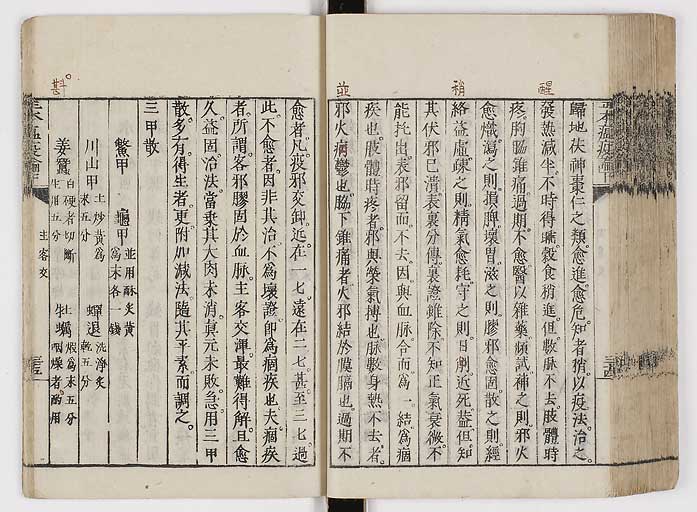 醒
稍
並
歸地茯神棗仁之類愈進愈危知者稍以疫法治之。
發熱減半不時得睡穀食稍進但數脉不去肢體時
疼胸脇錐痛過期不愈醫以雜藥頻試補之則邪火
愈熾瀉之則損脾壞胃滋之則膠邪愈固散之則經
絡益虛疎之則精氣愈耗守之則日削近死葢但知
其伏邪已潰表裏分傳裏證雖除不知正氣衰微不
能托出表邪留而不去因與血脉合而爲一結爲痼
疾也肢體時疼者邪與榮氣搏也脉數身熱不去者
邪火病鬱也脇下錐痛者火邪結於膜膈也過期不
愈者凡疫邪交卸近在一七遠在二七甚至三七過
此不愈者因非其治不爲壞證卽爲痼疾也夫痼疾
者所謂客邪膠固於血脉主客交渾最難得解且愈
久益固治法當乘其大肉未消眞元未敗急用三甲
散多有得生者更附加減法隨其平素而調之。
三甲散
鱉甲　龜甲 並用酥炙黃爲末各一錢
川山甲 土炒黃爲末五分　蟬退 洗淨炙乾五分
姜蠶 白硬者切斷生用五分　牡蠣 煅爲末五分咽燥者酌用
主客交